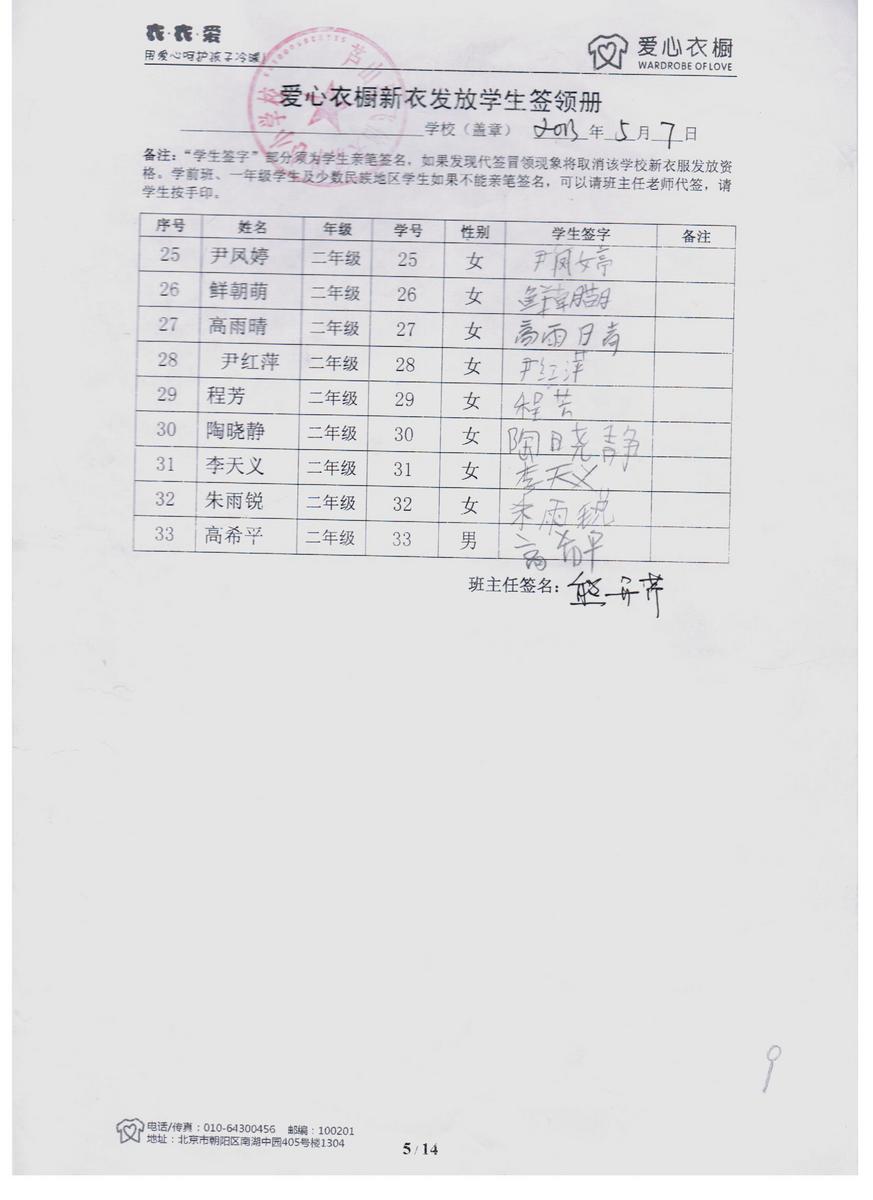 衣·衣·爱
用爱心呵护孩子冷暖!
爱心衣橱
WARDROBE OF LOVE
芦山
小学校
爱心衣橱新衣发放学生签领册
学校（盖章） 2013年 5月 7日
备注：“学生签字”部分须为学生亲笔签名，如果发现代签冒领现象将取消该学校新衣服发放资
格。学前班、一年级学生及少数民族地区学生如果不能亲笔签名，可以请班主任老师代签，请
学生按手印。
序号 姓名 年级 学号 性别 学生签字 备注
25 尹凤婷 二年级 25 女 尹凤婷
26 鲜朝萌 二年级 26 女 鲜朝萌
27 高雨晴 二年级 27 女 高雨晴
28 尹红萍 二年级 28 女 尹红萍
29 程芳 二年级 29 女 程芳
30 陶晓静 二年级 30 女 陶晓静
31 李天义 二年级 31 女 李天义
32 朱雨锐 二年级 32 女 朱雨锐
33 高希平 二年级 33 男 高希平
班主任签名：熊
电话/传真：010-64300456 邮编：100201
地址：北京市朝阳区南湖中园405号楼1304
5 / 14